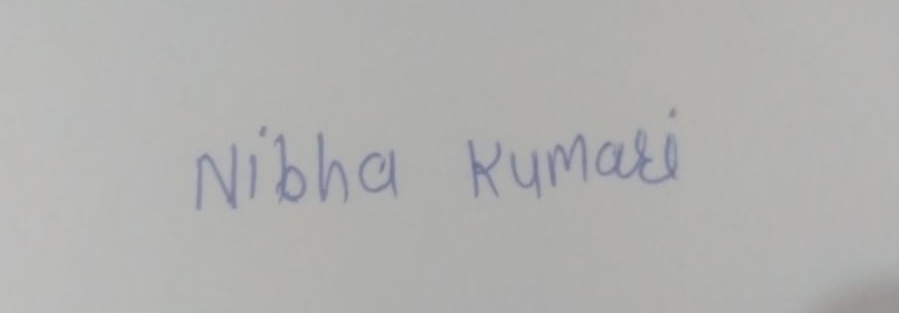 Nibha Kumari